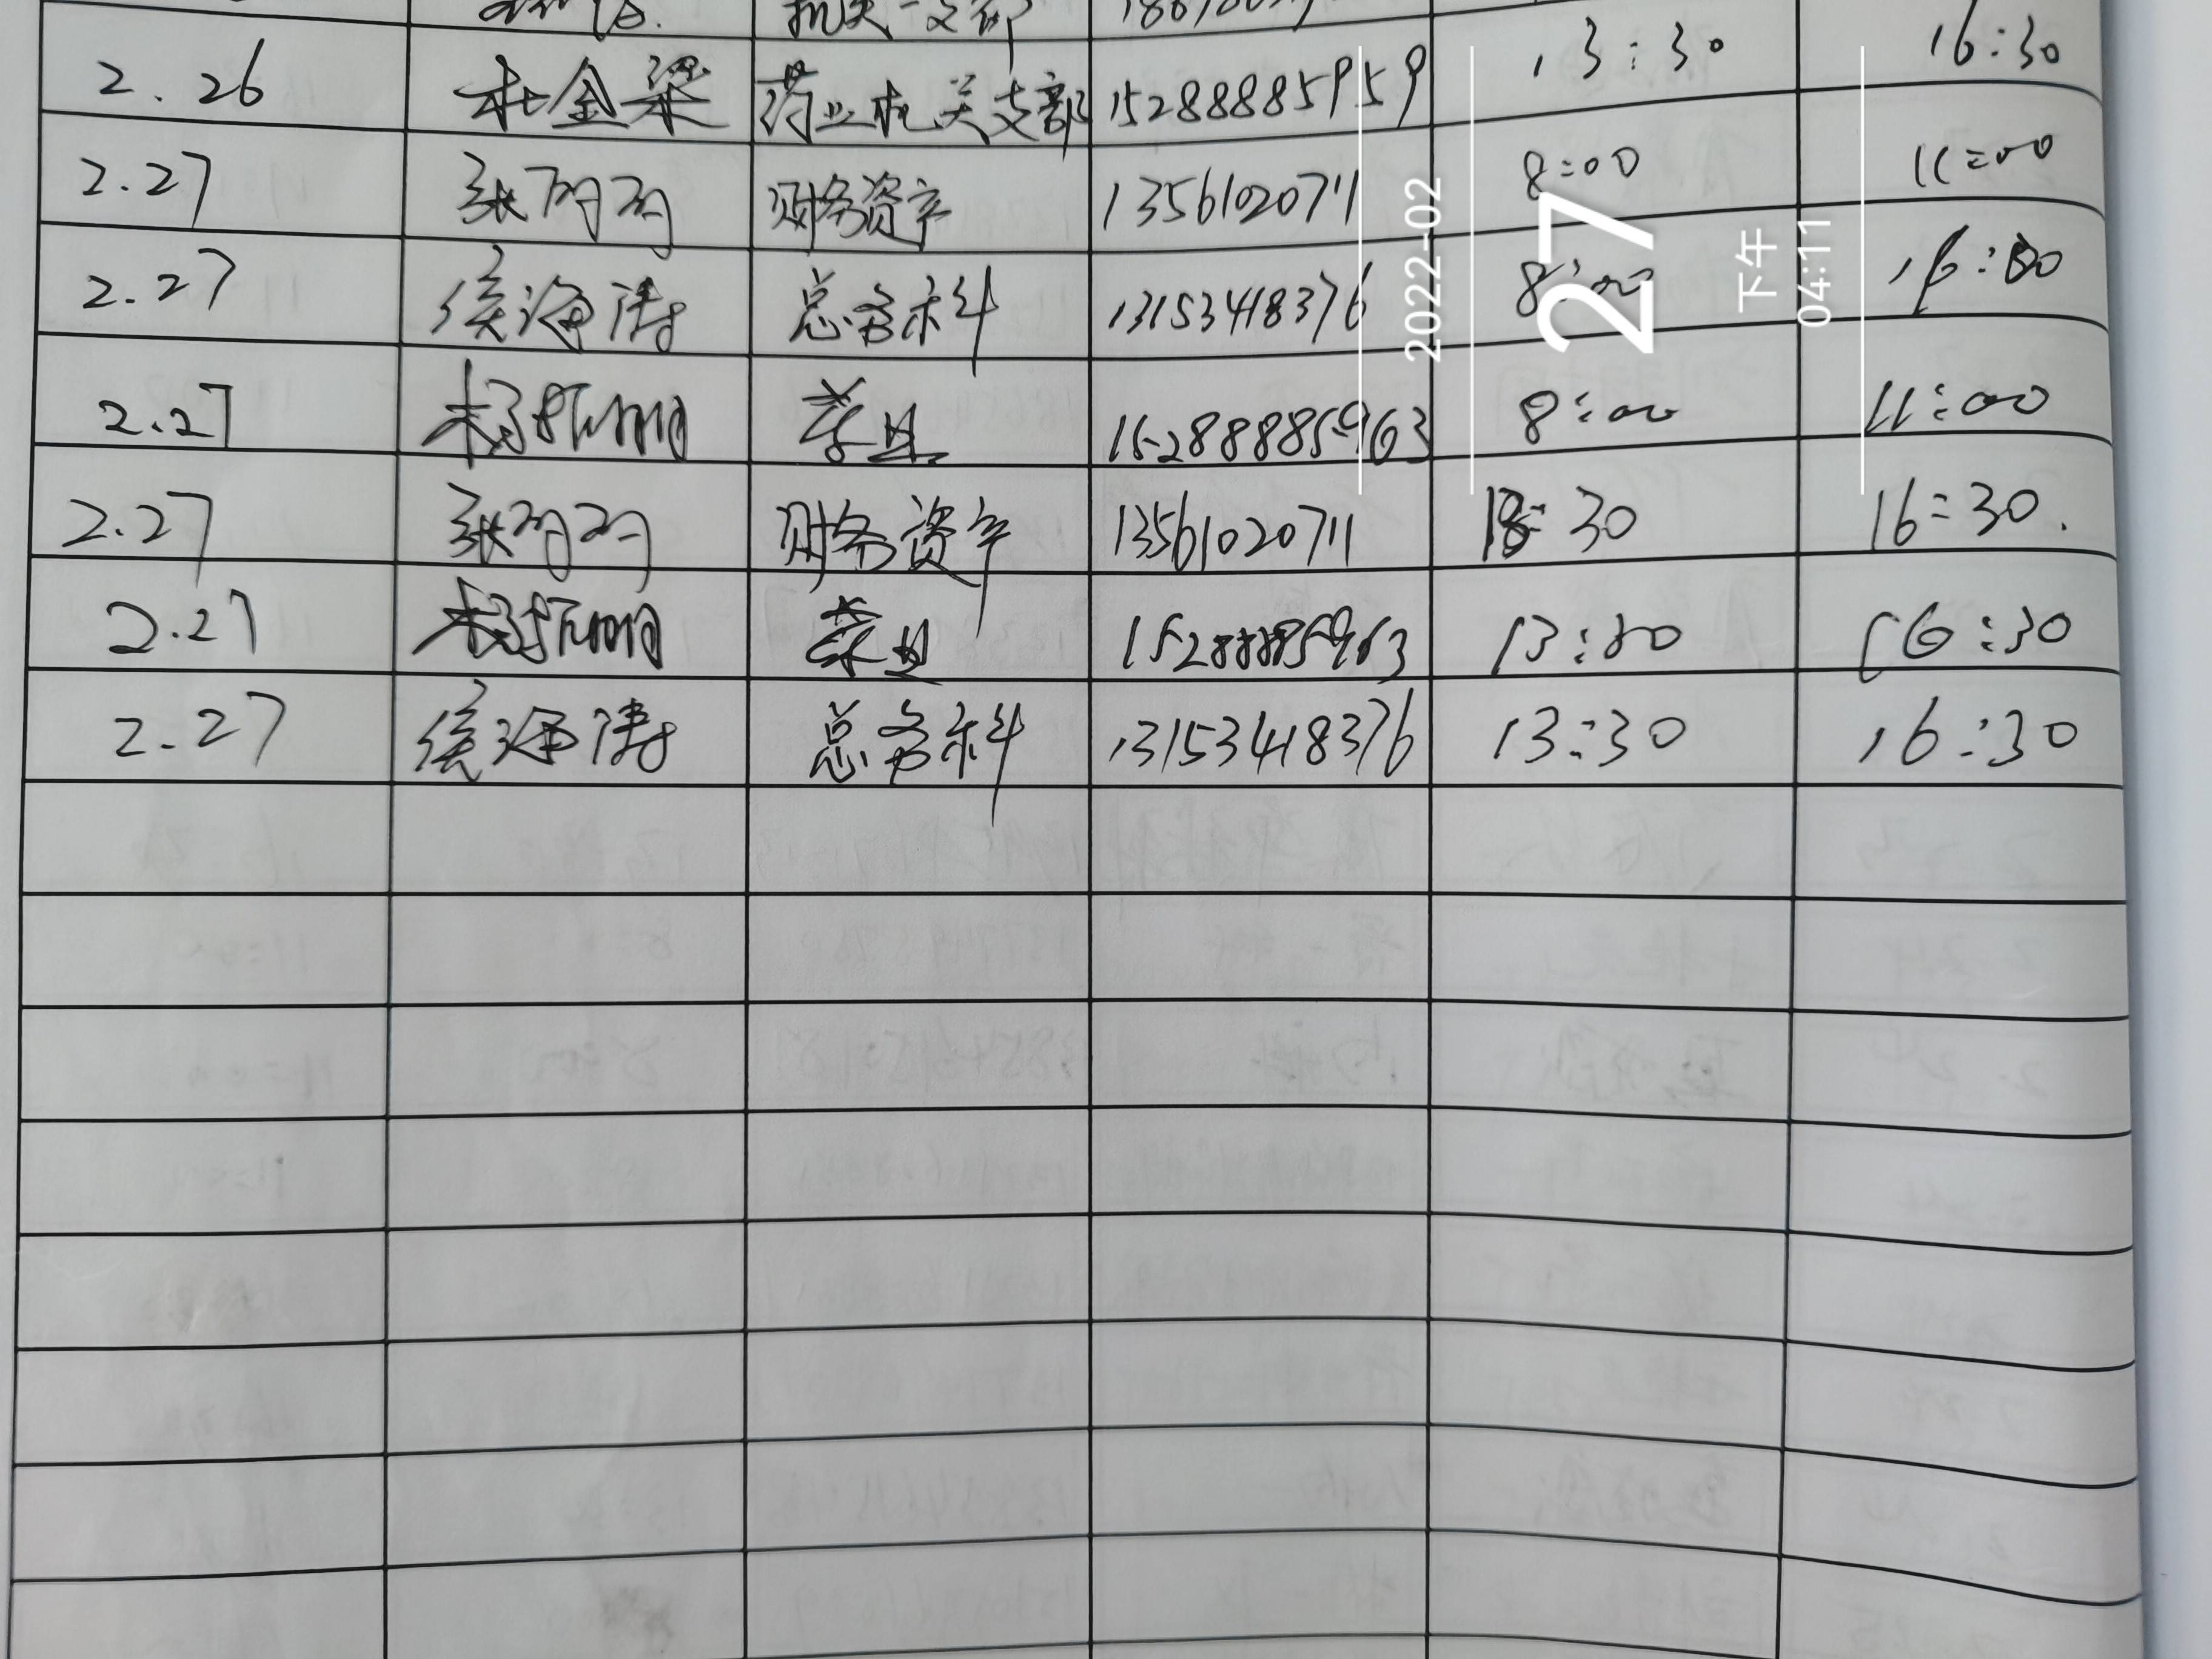 机关一支部
2.26 杜金梁 药业机关支部 15288885959 13:30 16:30
2.27 张丽丽 财务资产 13561020711 8:00 11:00
2.27 侯海涛 总务科 13153418376 8:00
2.27 15288885963 8:00 11:00
2.27 张丽丽 财务资产 13561020711 16:30.
2.27 15288885963 16:30
2.27 侯海涛 总务科 13153418376 13:30 16:30
2022-02
27
下午
04:11